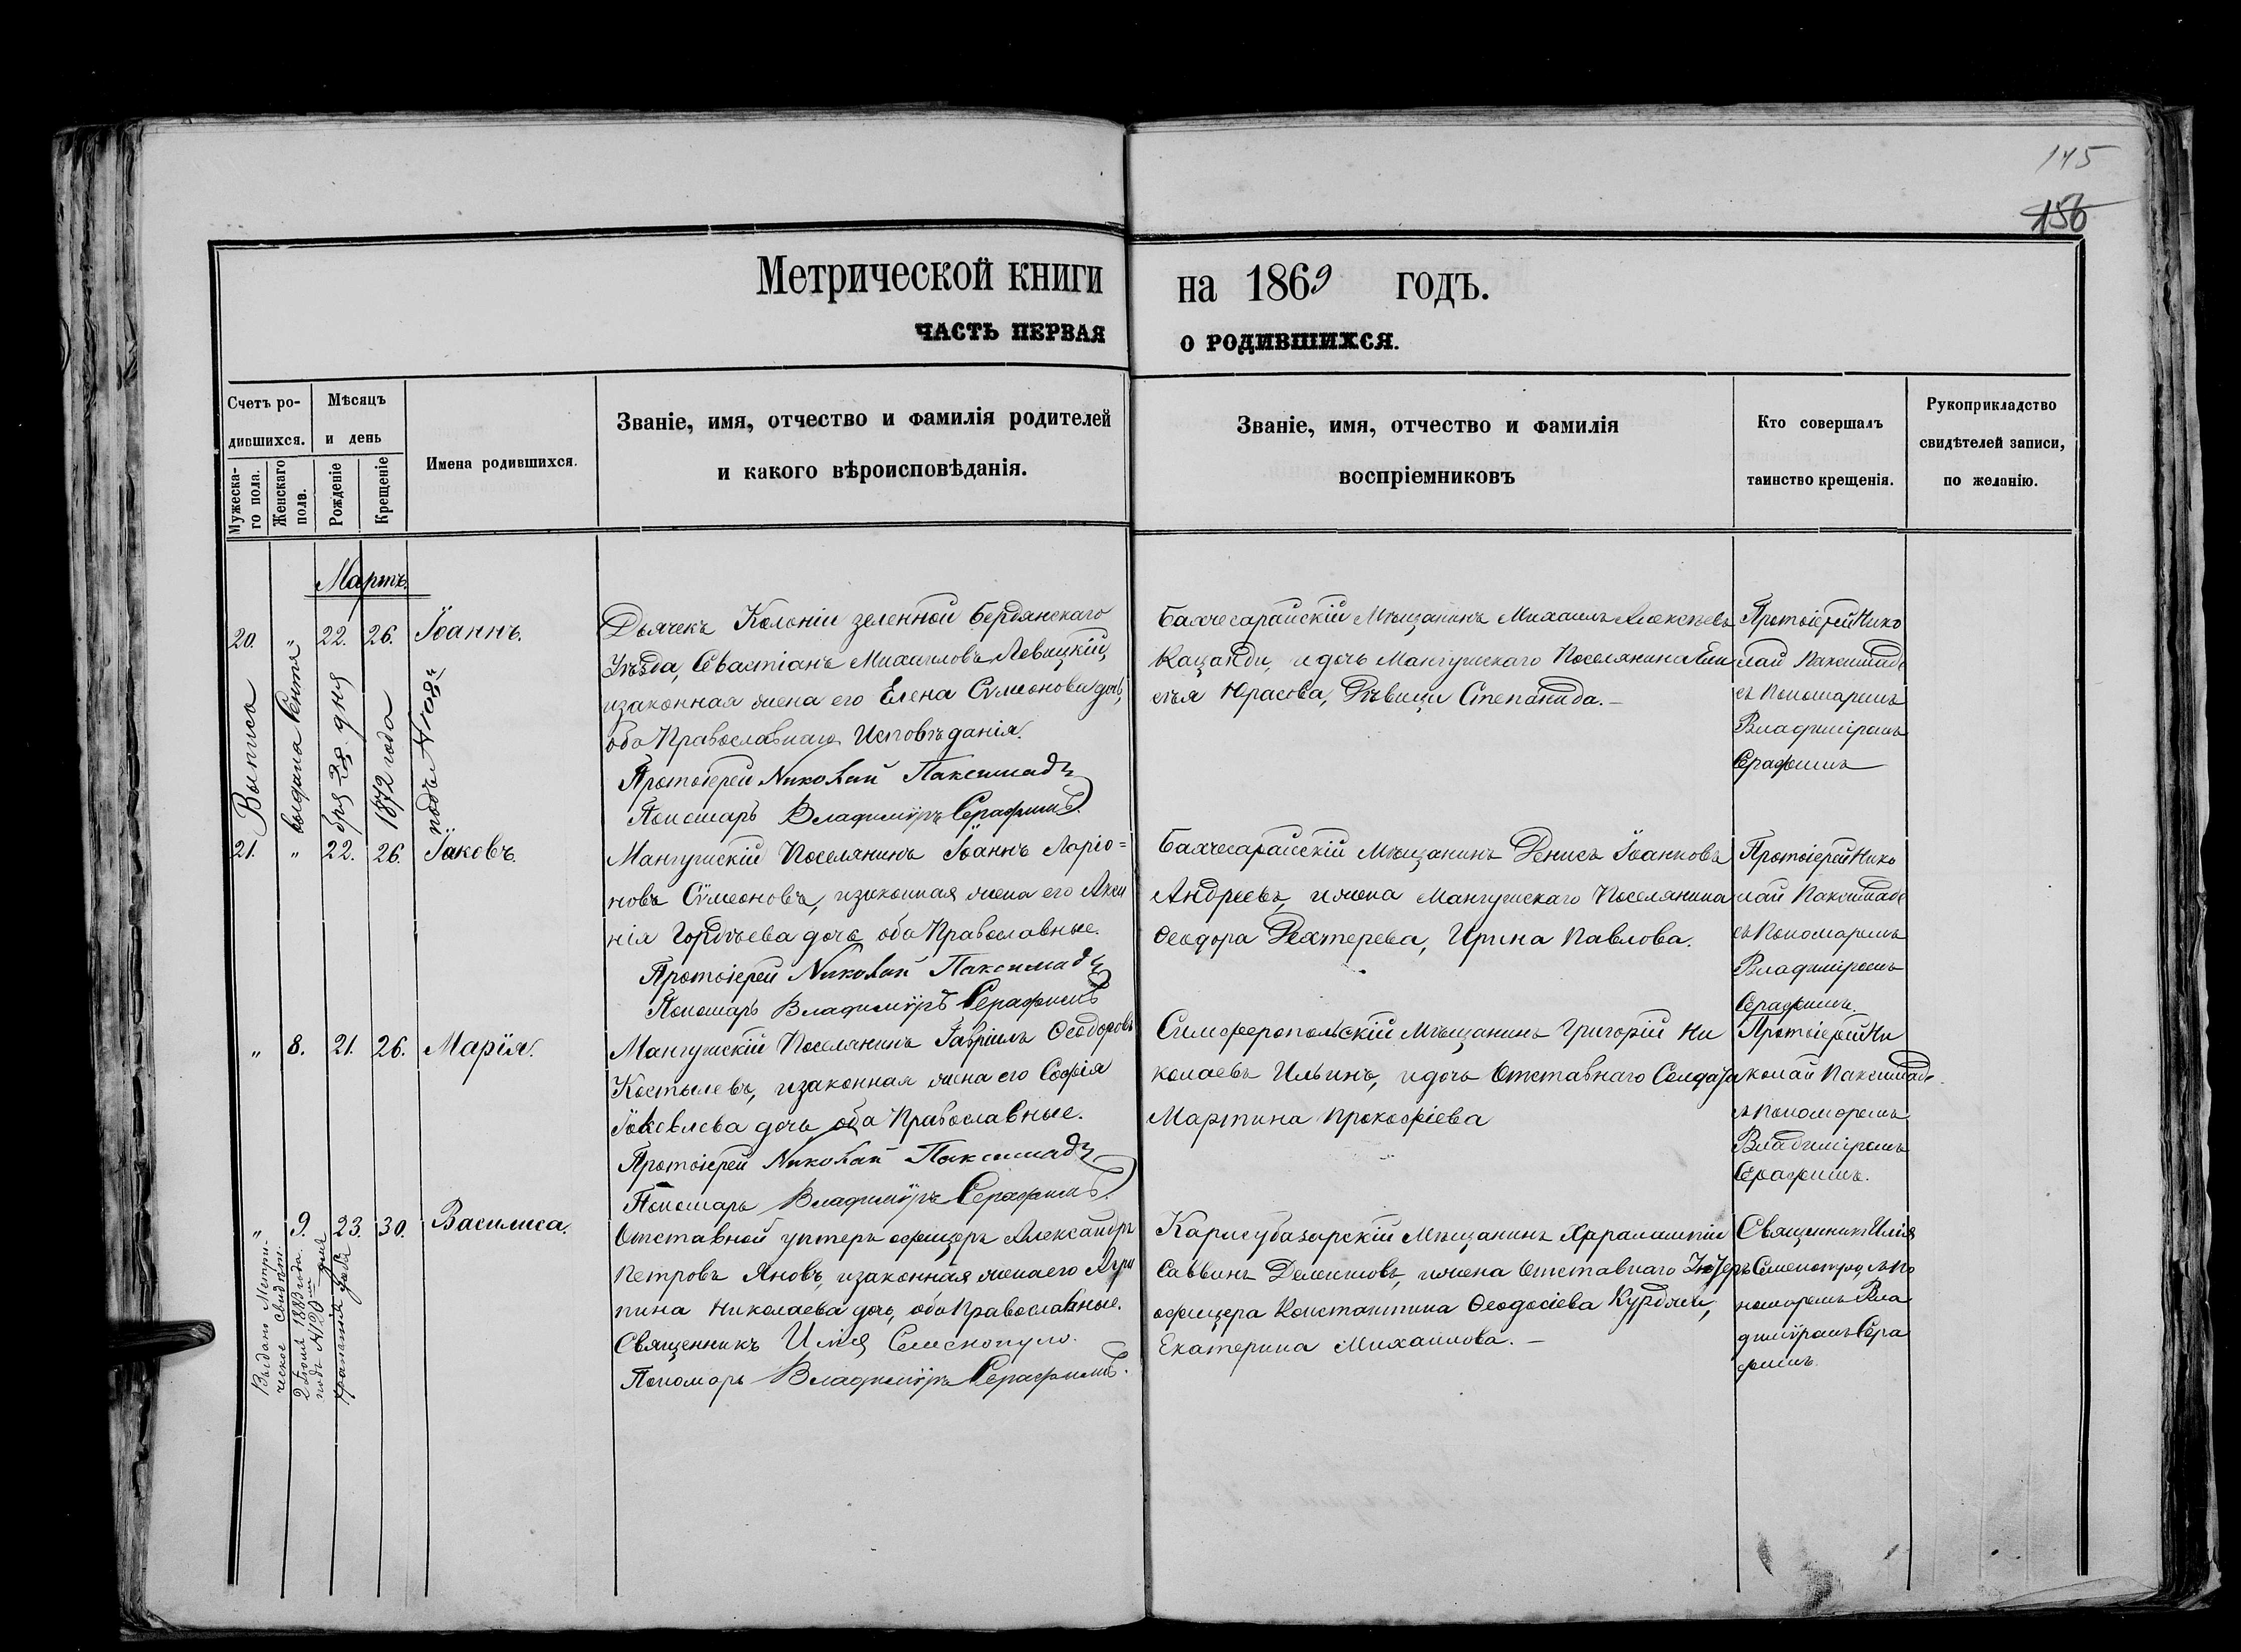 145
156
Метрической книги на 1869 годъ.
ЧАСТЬ ПЕРВАЯ О РОДИВШИХСЯ.
Счетъ ро-
дившихся.
Мужеска-
го пола.
Женскаго
пола.
Мѣсяцъ
и день
Рожденіе
Крещеніе
Имена родившихся.
Званіе, имя, отчество и фамилія родителей
и какого вѣроисповѣданія.
Званіе, имя, отчество и фамилія
воспріемниковъ
Кто совершалъ
таинство крещенія.
Рукоприкладство
свидѣтелей записи,
по желанію.
Мартъ.
20. " 22. 26. Іоаннъ.
Дьячекъ Колоніи зеленной Бердянскаго
Уѣзда, Севастіанъ Михаиловъ Левицкій,
изаконная жена его Елена Сѵмеонова дочь,
оба Православнаго Исповѣданія.
Протоіерей Николай Паксимадъ
Пономарь Владимиръ Серафимъ.
Бахчесарайскій Мѣщанинъ Михаилъ Алексѣевъ
Кацанди, идочь Мангушскаго Поселянина Ели
сѣя Юрасова, Дѣвица Степанида. –
Протоіерей Нико
лай Паксимадъ
съ Пономаремъ
Владиміромъ
Серафимъ
Выпись
выдана Сентя
бря 28 дня
1872 года
подъ №
21. " 22. 26. Іаковъ.
Мангушскій Поселянинъ Іоаннъ Ларіо=
новъ Сѵмеоновъ, изаконная жена его Аксі
нія Гордѣева дочь оба Православные.
Протоіерей Николай Паксимадъ
Пономарь Владимиръ Серафимъ
Бахчесарайскій Мѣщанинъ Денисъ Іоанновъ
Андреевъ, ижена Мангушскаго Поселянина
Ѳеодора Дехтерева, Ирина Павлова.
Протоіерей Нико
лай Паксимадъ
съ Пономаремъ
Владиміромъ
Серафимъ.
" 8. 21. 26. Марія.
Мангушскій Поселянинъ Гавріилъ Ѳеодоровъ
Костылевъ, изаконная жена его Софія
Іаковлева дочь оба Православные.
Протоіерей Николай Паксимадъ
Пономарь Владимиръ Серафимъ.
Симферопольскій Мѣщанинъ Григорій Ни
колаевъ Ильинъ, идочь Отставнаго Солдата
Мартина Прокофіева
Протоіерей Ни
колай Паксимадъ
съ Пономаремъ
Владиміромъ
Серафимъ.
" 9. 23. 30. Василиса.
Отставной унтеръ офицеръ Александръ
Петровъ Яновъ, изаконная жена его Агри
пина Николаева дочь, оба Православные.
Священникъ Илія Семенопуло.
Пономарь Владимиръ Серафимъ.
Карасубазарскій Мѣщанинъ Харалампій
Саввинъ Делекиовъ, ижена Отставнаго Унтеръ
офицера Константина Ѳеодосіева Курдьян,
Екатерина Михаилова. –
Священникъ Илія
Семенопуло, съ По
номаремъ Вла
диміромъ Сера
фимъ.
Выдано Метри-
ческое Свидѣт.
1883 года.
подъ №120